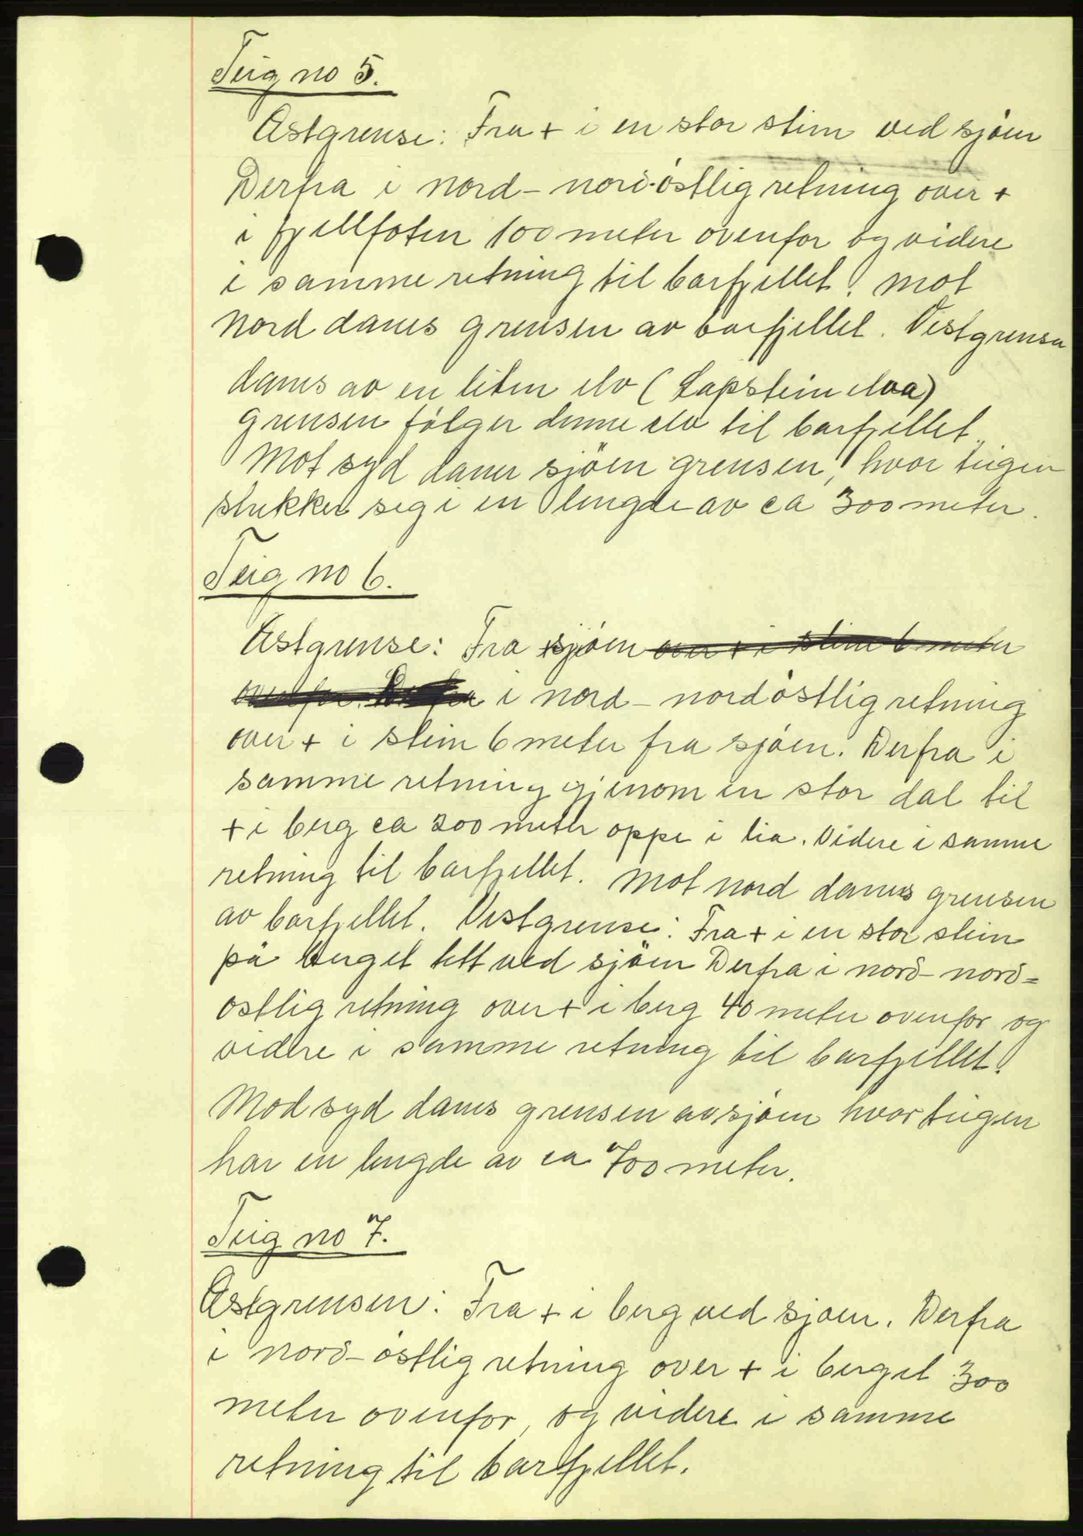 Teig no 5.
Østgrense: Fra + i en stor stein ved sjöen
Derfra i nord-nord-östlig retning over +
i fjellfoten 100 meter ovenfor og videre
i samme retning til barfjellet. Mot
Nord danes grensen av barfjellet. Vestgrensen
danes av en liten elv (Lapstein elva)
grensen fölger denne elv til barfjellet.
Mot syd daner sjöen grensen, hvor teigen
strekker seg i en lengde av ca 300 meter.
Teig no 6.
Østgrense: Fra sjöen over + i stein 6 meter
ovenfor. Derfra i nord-nordöstlig retning
over + i stein 6 meter fra sjöen. Derfra i
samme retning gjenom en stor dal til
+ i berg ca 200 meter oppe i lia. Videre i samme
retning til barfjellet. Mot nord danes grensen
av barfjellet. Vestgrense: Fra + i en stor stein
på berget tett ved sjöen Derfra i nord-nord=
ostlig retning over + i berg 40 meter ovenfor og
videre i samme retning til barfjellet.
Mod syd danes grensen av sjöen hvor teigen
har en lengde av ca 700 meter.
Teig no 7.
Østgrensen: Fra + i berg ved sjoen. Derfra
i nord-östlig retning over + i berget 300
meter ovenfor, og videre i samme
retning til barfjellet.